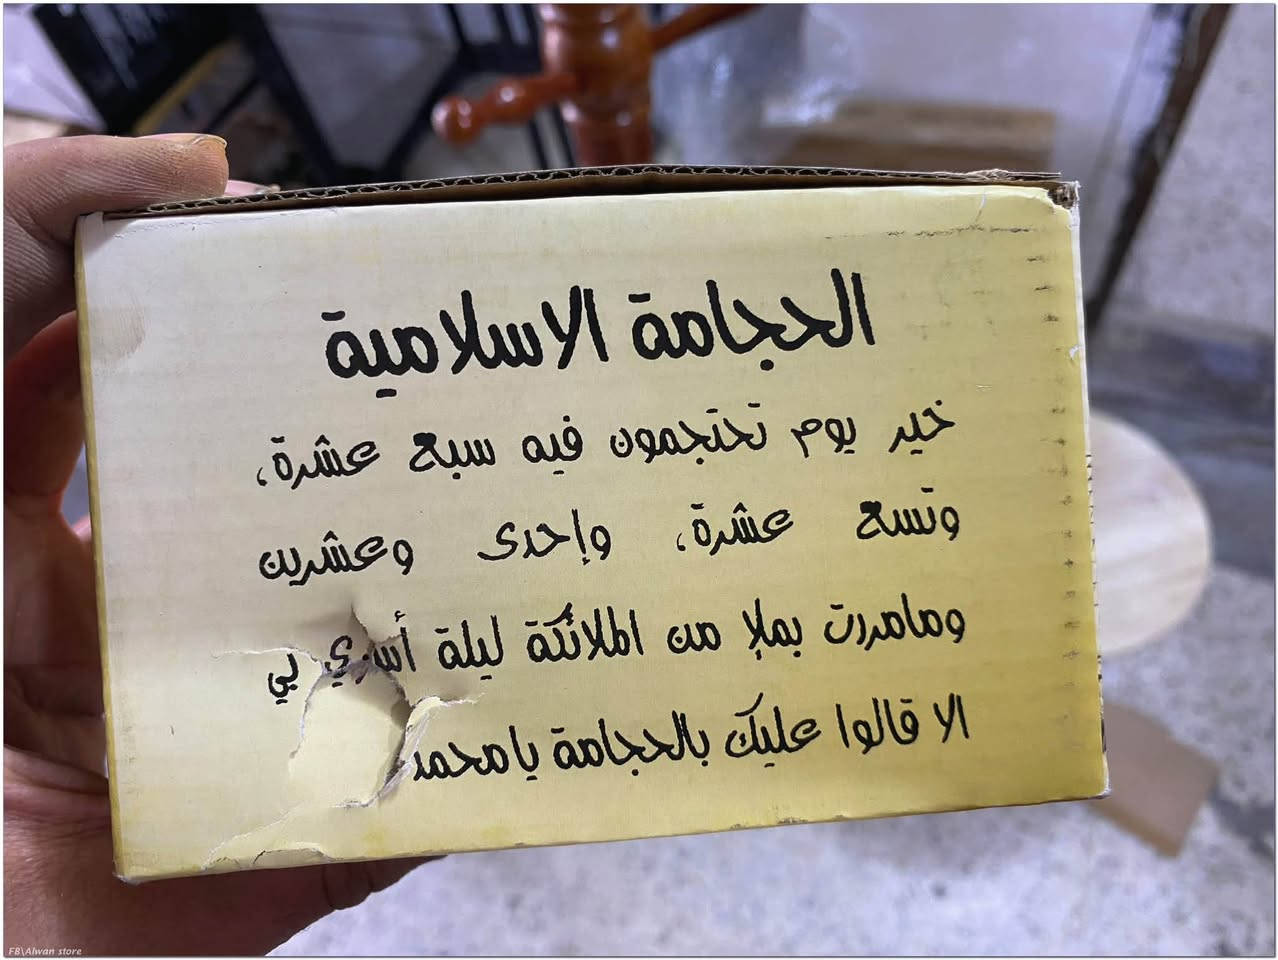 الحجامة الاسلامية
خير يوم تحتجمون فيه سبع عشرة،
وتسع عشرة، وإحدى وعشرين
ومامررت بملإ من الملائكة ليلة أسري بي
الا قالوا عليك بالحجامة يامحمد
FB\Alwan store